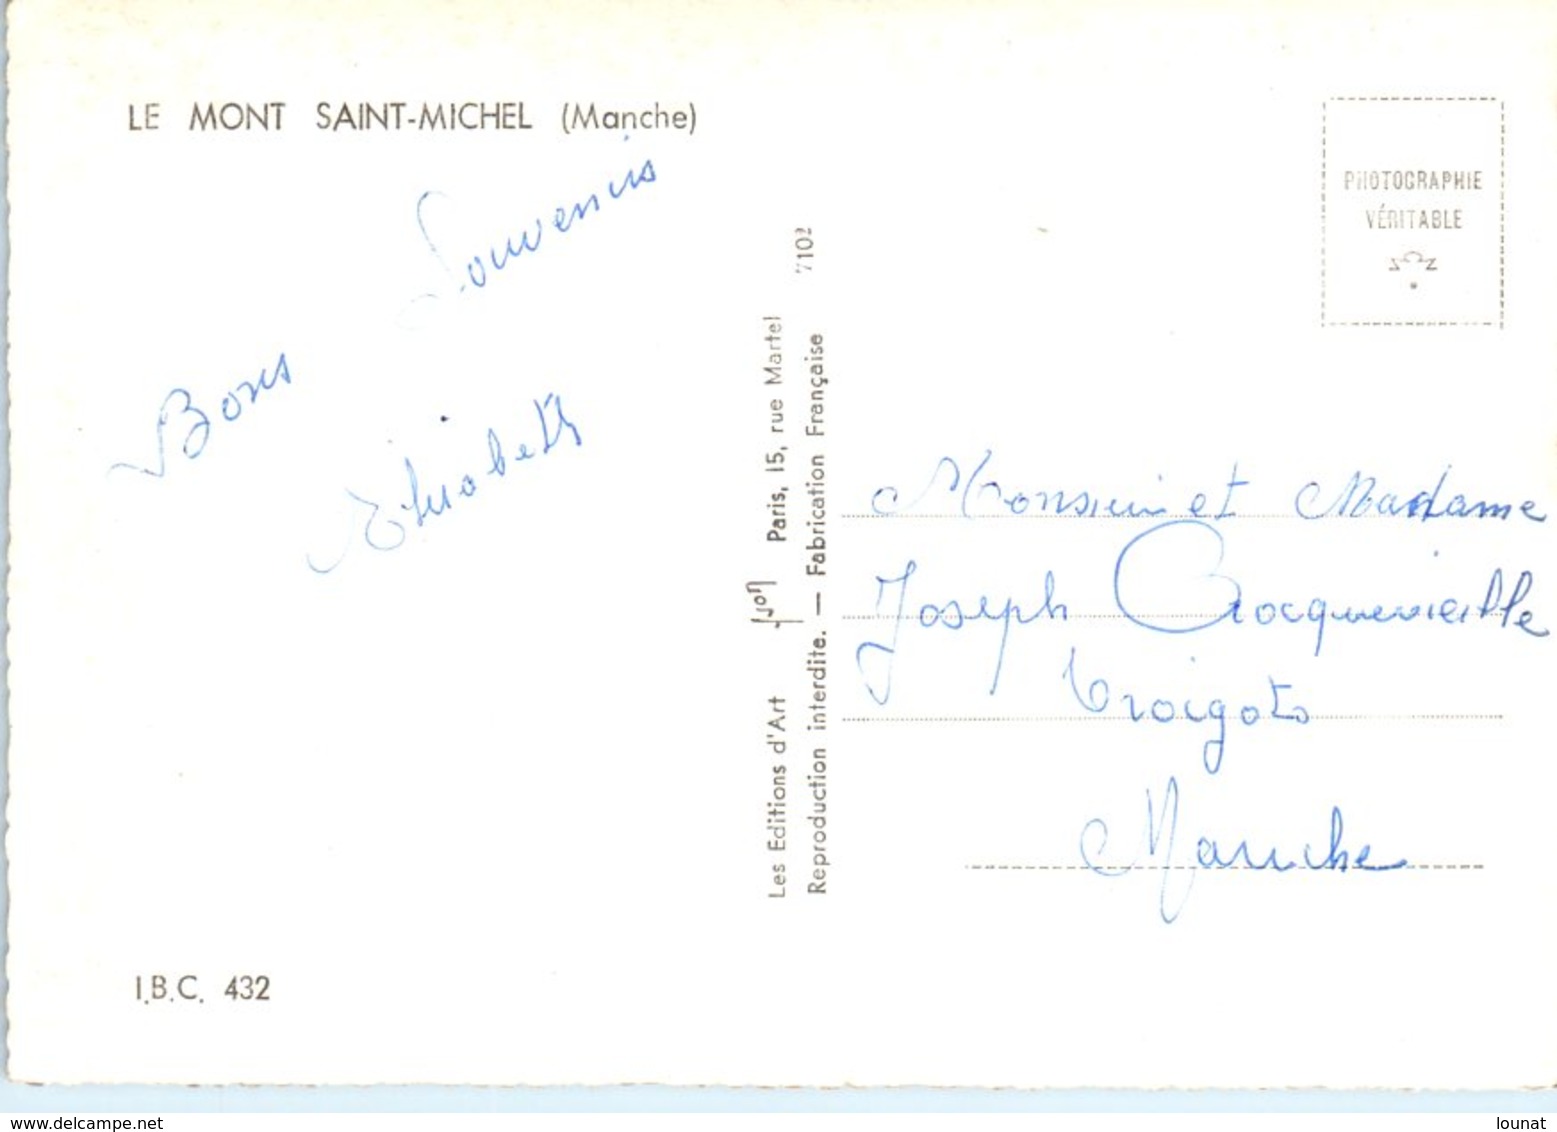 LE MONT SAINT-MICHEL (Manche)
Bons Souvenirs
Elisabeth
I.B.C. 432
Les Editions d'Art Yvon Paris, 15, rue Martel
Reproduction interdite. — Fabrication Française 7102
PHOTOGRAPHIE
VÉRITABLE
Monsieur et Madame
Joseph Crocquevieille
Troisgots
Manche
www.delcampe.net
lounat